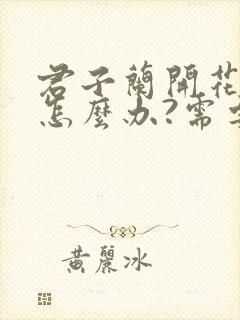 君子蘭開花
怎麼办?需
黃麗冰